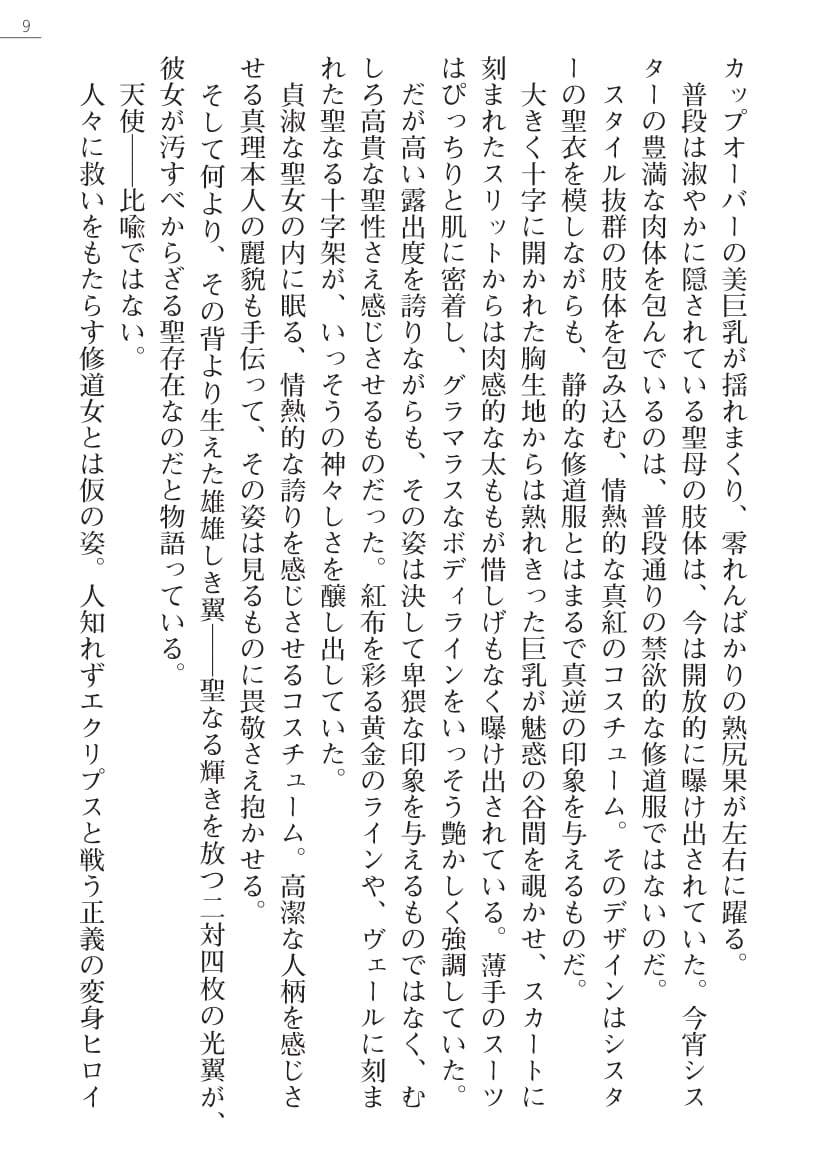 9
カップオーバーの美巨乳が揺れまくり、零れんばかりの熟尻果が左右に躍る。
普段は淑やかに隠されている聖母の肢体は、今は開放的に曝け出されていた。今宵シス
ターの豊満な肉体を包んでいるのは、普段通りの禁欲的な修道服ではないのだ。
スタイル抜群の肢体を包み込む、情熱的な真紅のコスチューム。そのデザインはシスタ
ーの聖衣を模しながらも、静的な修道服とはまるで真逆の印象を与えるものだ。
大きく十字に開かれた胸生地からは熟れきった巨乳が魅惑の谷間を覗かせ、スカートに
刻まれたスリットからは肉感的な太ももが惜しげもなく曝け出されている。薄手のスーツ
はぴっちりと肌に密着し、グラマラスなボディラインをいっそう艶かしく強調していた。
だが高い露出度を誇りながらも、その姿は決して卑猥な印象を与えるものではなく、む
しろ高貴な聖性さえ感じさせるものだった。紅布を彩る黄金のラインや、ヴェールに刻ま
れた聖なる十字架が、いっそうの神々しさを醸し出していた。
貞淑な聖女の内に眠る、情熱的な誇りを感じさせるコスチューム。高潔な人柄を感じさ
せる真理本人の麗貌も手伝って、その姿は見るものに畏敬さえ抱かせる。
そして何より、その背より生えた雄雄しき翼――聖なる輝きを放つ二対四枚の光翼が、
彼女が汚すべからざる聖存在なのだと物語っている。
天使――比喩ではない。
人々に救いをもたらす修道女とは仮の姿。人知れずエクリプスと戦う正義の変身ヒロイ